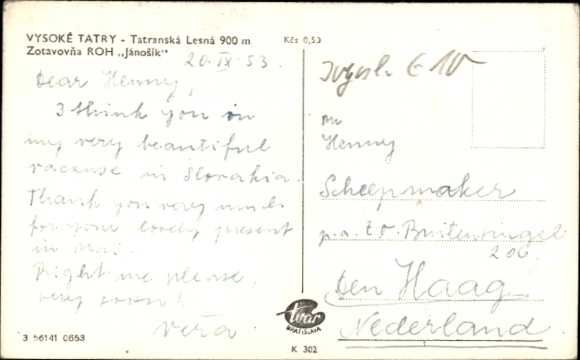 VYSOKÉ TATRY - Tatranská Lesná 900 m
Zotavovňa ROH „Jánošík"
Kčs 0,50
20-IX-53.
Dear Henny,
I think you in
my very beautiful
vacanse in Slovakia.
Thank you very much
for your lovely present
in Mai.
Right me please,
very soon!
Věra
3 56141 0653
tvar
BRATISLAVA
K 302
Henny
Scheepmaker
p.a. t.o. Buitensingel
206
Den Haag
Nederland